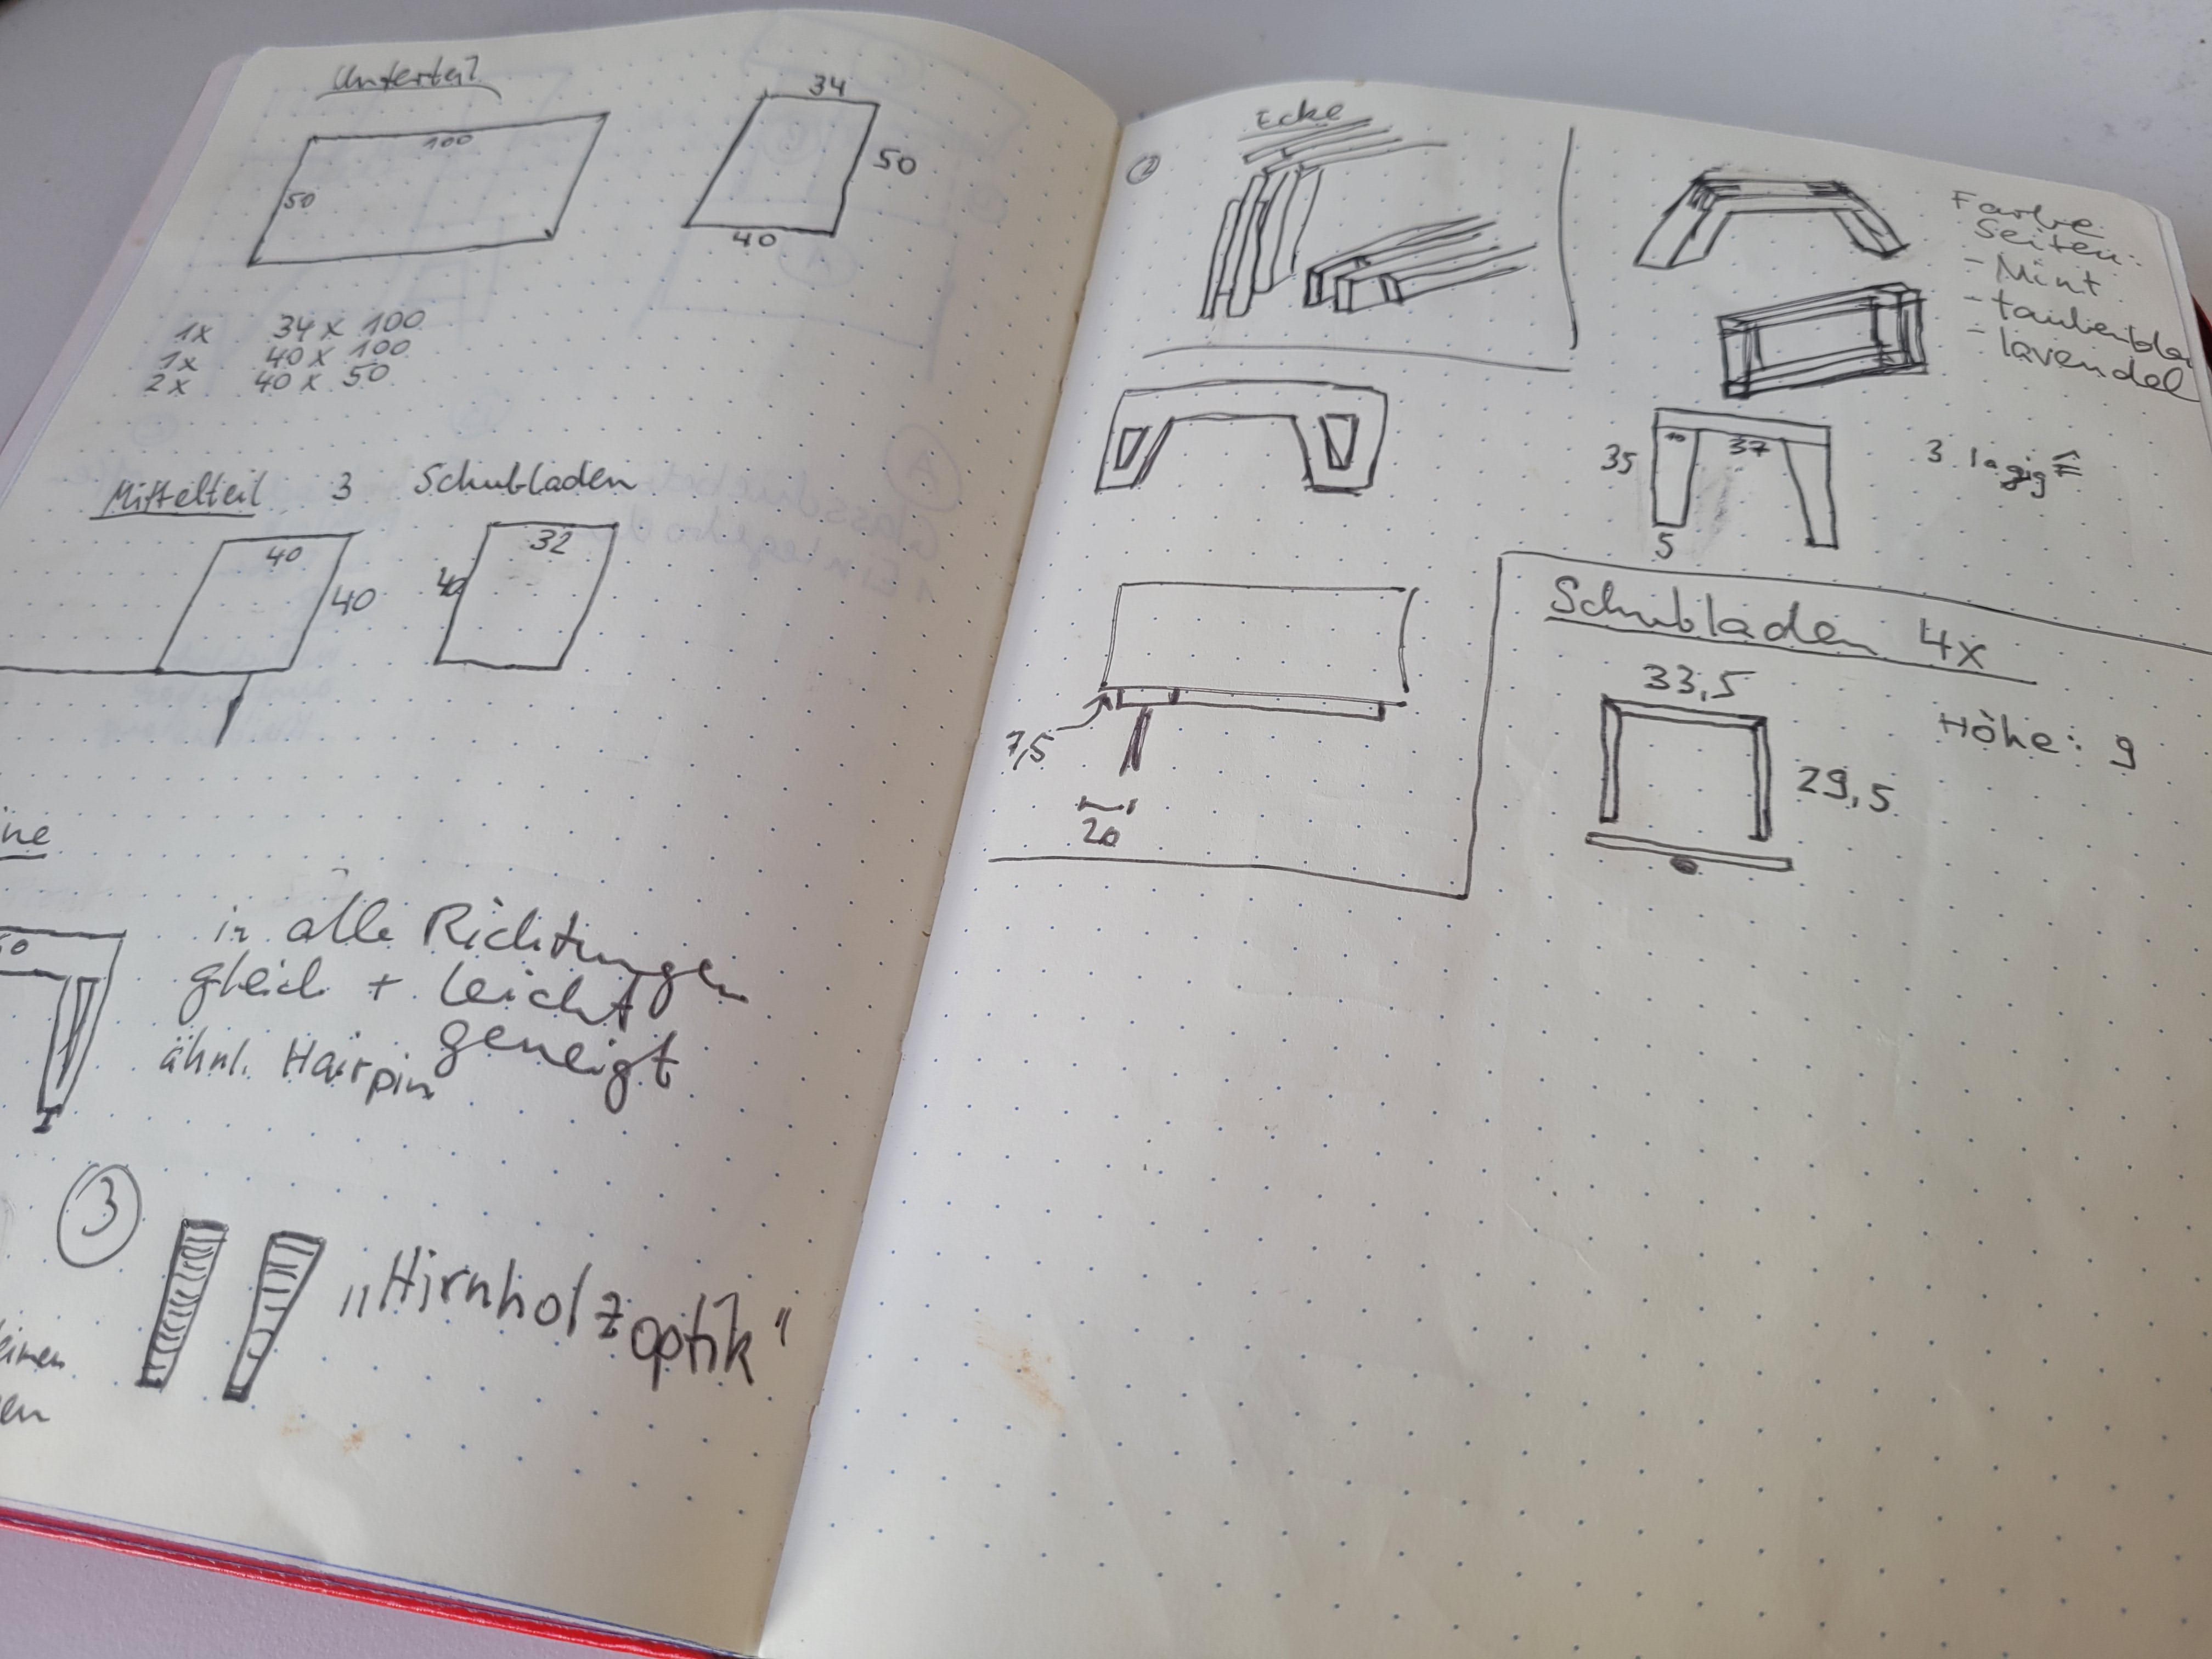 Unterteil
100
50
34
50
40
1x 34 x 100
1x 40 x 100
2x 40 x 50
Mittelteil 3 Schubladen
40
40
32
40
ine
in alle Richtungen
gleich + leicht
geneigt
ähnl. Hairpin
3
„Hirnholzoptik"
einen
en
Ecke
Farbe
Seiten:
- Mint
- taubenbla
- lavendel
35
10
37
5
3 lagig
7,5
20
Schubladen 4x
33,5
Höhe: 9
29,5